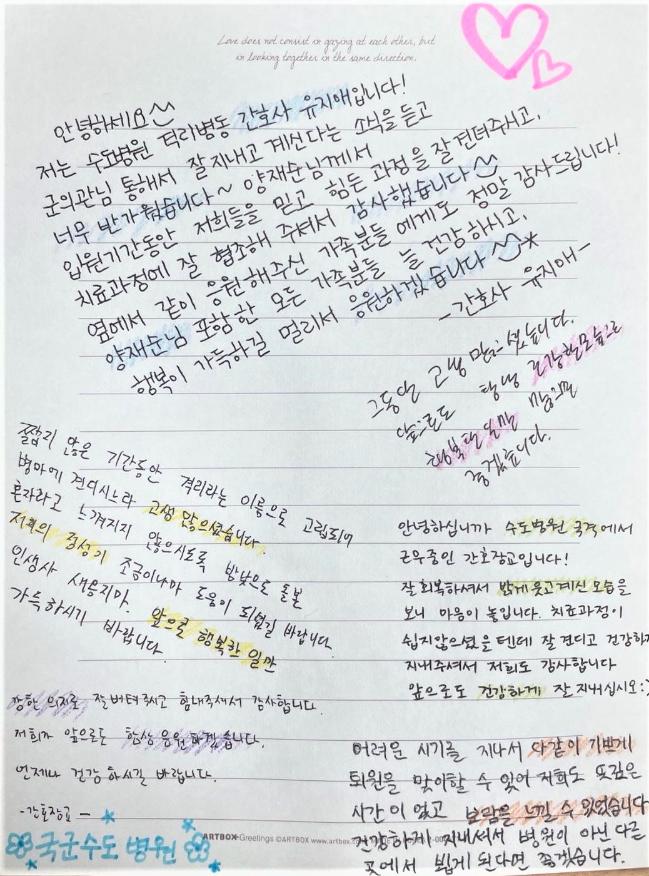 Love does not consist in gazing at each other, but
in looking together in the same direction.
안녕하세요^^
저는 수도병원 격리병동 간호사 유지애입니다!
군의관님 통해서 잘 지내고 계신다는 소식을 듣고
너무 반가웠습니다~ 양재순님께서
입원기간동안 저희들을 믿고 힘든 과정을 잘 견뎌주시고,
치료과정에 잘 협조해 주셔서 감사했습니다^^
옆에서 같이 응원해주신 가족분들 에게도 정말 감사드립니다!
양재순님 포함한 모든 가족분들 늘 건강하시고,
행복이 가득하길 멀리서 응원하겠습니다^^*
-간호사 유지애-
그동안 고생 많으셨습니다.
앞으로도 항상 건강한모습으로
행복한 일만 많으면
좋겠습니다.
짧지 않은 기간동안 격리라는 이름으로 고립되어
병마에 견디시느라 고생 많으셨습니다.
혼자라고 느껴지지 않으시도록 밤낮으로 돌본
저희의 정성이 조금이나마 도움이 되셨길 바랍니다.
인생사 새옹지마. 앞으로 행복한 일만
가득하시기 바랍니다.
안녕하십니까 수도병원 국격에서
근무중인 간호장교입니다!
잘 회복하셔서 밝게 웃고계신 모습을
보니 마음이 놓입니다. 치료과정이
쉽지않으셨을 텐데 잘 견디고 건강하게
지내주셔서 저희도 감사합니다
앞으로도 건강하게 잘 지내십시오:)
강한 의지로 잘 버텨주시고 힘내주셔서 감사합니다.
저희가 앞으로도 항상 응원하겠습니다.
언제나 건강하시길 바랍니다.
-간호장교-
어려운 시기를 지나서 다같이 기쁘게
퇴원을 맞이할 수 있어 저희도 뜻깊은
시간이 었고 보람을 느낄 수 있었습니다
건강하게 지내셔서 병원이 아닌 다른
곳에서 뵙게 된다면 좋겠습니다.
국군수도병원
ARTBOX Greetings ©ARTBOX www.artbox